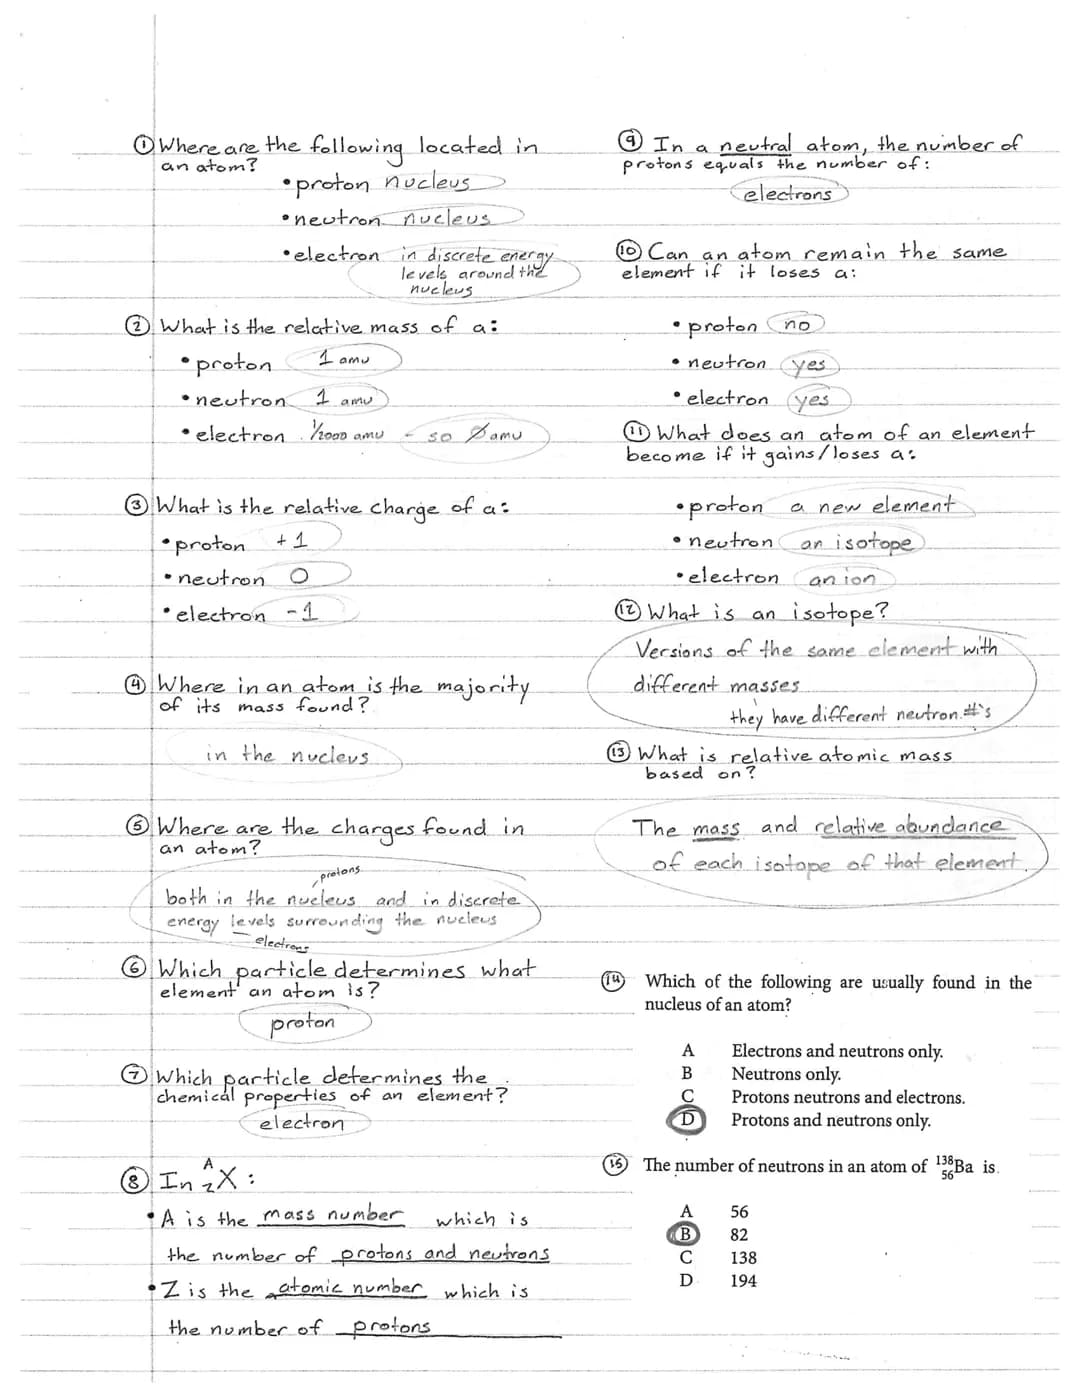 ① Where are the following located in
an atom?
• proton nucleus
• neutron nucleus
• electron in discrete energy
levels around the
nucleus
② What is the relative mass of a:
• proton 1 amu
• neutron 1 amu
• electron 1/2000 amu - so ∅ amu
③ What is the relative charge of a:
• proton +1
• neutron 0
• electron -1
④ Where in an atom is the majority
of its mass found?
in the nucleus
⑤ Where are the charges found in
an atom?
protons
both in the nucleus and in discrete
energy levels surrounding the nucleus
electrons
⑥ Which particle determines what
element an atom is?
proton
⑦ Which particle determines the
chemical properties of an element?
electron
⑧ In ᴬ_Z X :
• A is the mass number which is
the number of protons and neutrons
• Z is the atomic number which is
the number of protons
⑨ In a neutral atom, the number of
protons equals the number of:
electrons
⑩ Can an atom remain the same
element if it loses a:
• proton no
• neutron yes
• electron yes
⑪ What does an atom of an element
become if it gains/loses a:
• proton a new element
• neutron an isotope
• electron an ion
⑫ What is an isotope?
Versions of the same element with
different masses
they have different neutron #'s
⑬ What is relative atomic mass
based on?
The mass and relative abundance
of each isotope of that element.
⑭ Which of the following are usually found in the
nucleus of an atom?
A Electrons and neutrons only.
B Neutrons only.
C Protons neutrons and electrons.
D Protons and neutrons only.
⑮ The number of neutrons in an atom of ¹³⁸₅₆Ba is.
A 56
B 82
C 138
D 194